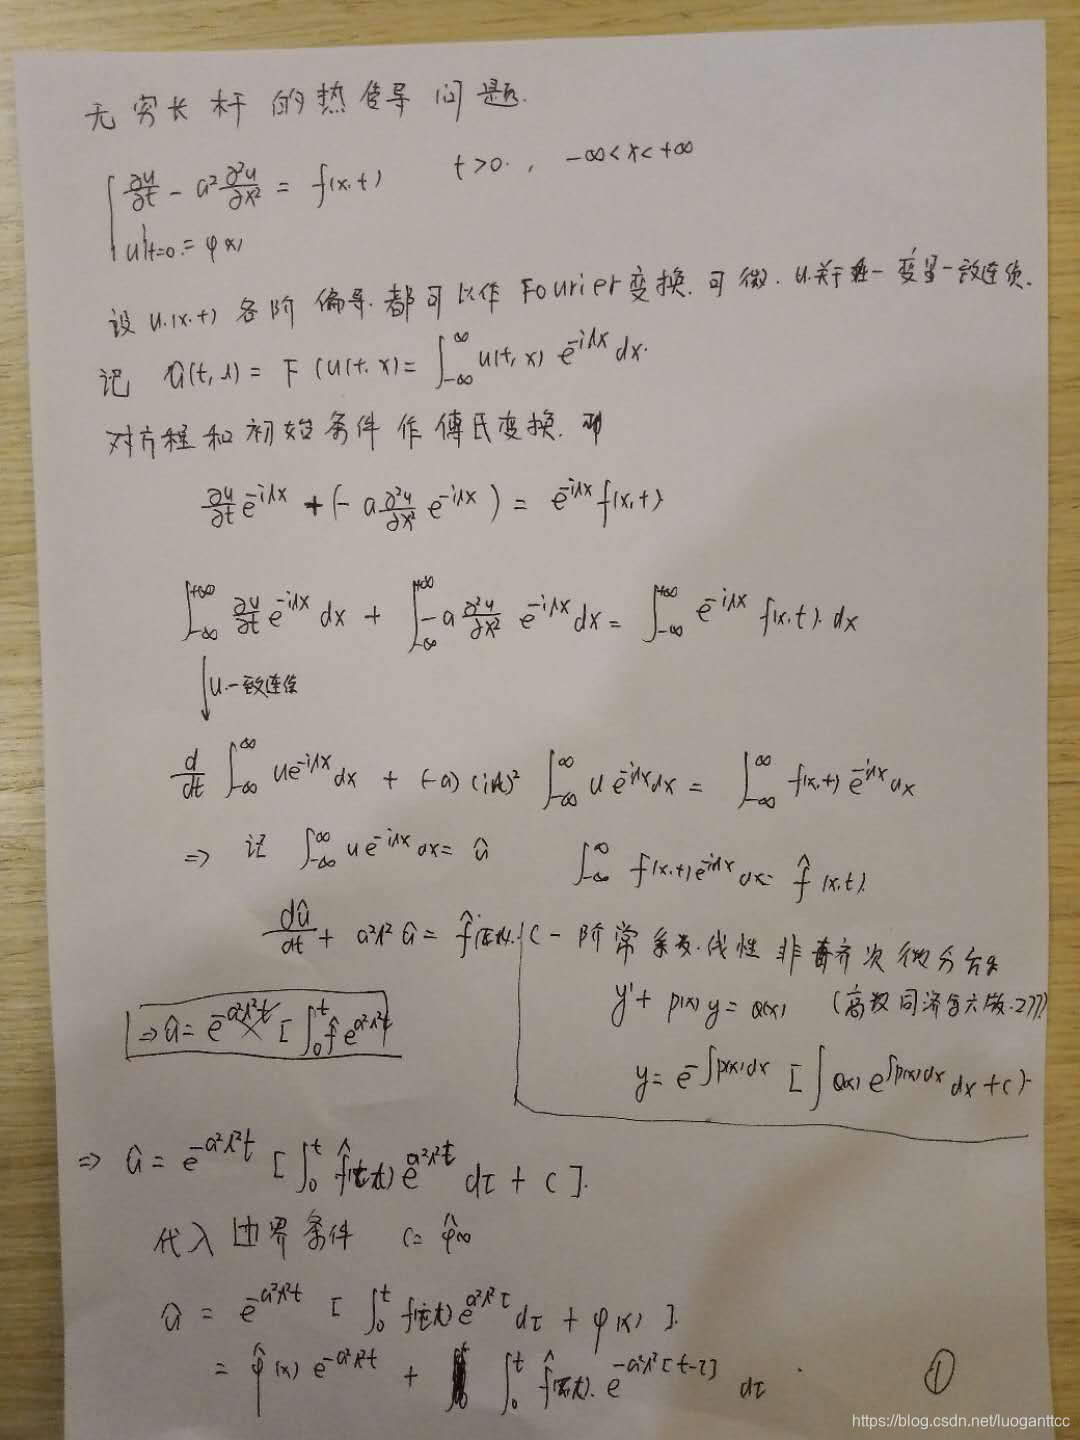 无穷长杆的热传导问题.
∂u/∂t - a² ∂²u/∂x² = f(x,t)   t>0. , -∞<x<+∞
u|t=0 = φ(x)
设 u(x,t) 各阶偏导.都可以作 Fourier变换.可微. u.关于 一变量一致连续.
记 û(t,λ) = F(u(t,x) = ∫_{-∞}^{∞} u(t,x) e^{-iλx} dx.
对方程和初始条件作傅氏变换.
∂u/∂t e^{-iλx} + (- a ∂²u/∂x² e^{-iλx}) = e^{-iλx} f(x,t)
∫_{-∞}^{+∞} ∂u/∂t e^{-iλx} dx + ∫_{-∞}^{+∞} -a ∂²u/∂x² e^{-iλx} dx = ∫_{-∞}^{+∞} e^{-iλx} f(x,t). dx
↓ u.一致连续
d/dt ∫_{-∞}^{∞} u e^{-iλx} dx + (-a) (iλ)² ∫_{-∞}^{∞} u e^{-iλx} dx = ∫_{-∞}^{∞} f(x,t) e^{-iλx} dx
⇒ 记 ∫_{-∞}^{∞} u e^{-iλx} dx = û   ∫_{-∞}^{∞} f(x,t) e^{-iλx} dx = f̂(x,t).
dû/dt + a²λ² û = f̂   (一阶常系数.线性非齐次微分方程
y' + p(x) y = Q(x)   (高数同济第六版.277)
⇒ û = e^{-a²λ²t} [ ∫_0^t f̂ e^{a²λ²t}
y = e^{-∫p(x)dx} [ ∫ Q(x) e^{∫p(x)dx} dx + c ).
⇒ û = e^{-a²λ²t} [ ∫_0^t f̂ e^{a²λ²t} dτ + C ].
代入边界条件   C = φ̂
û = e^{-a²λ²t} [ ∫_0^t f e^{a²λ²τ} dτ + φ(x) ].
= φ̂(x) e^{-a²λ²t} + ∫_0^t f̂ . e^{-a²λ²[t-τ]} dτ   ①
https://blog.csdn.net/luoganttcc